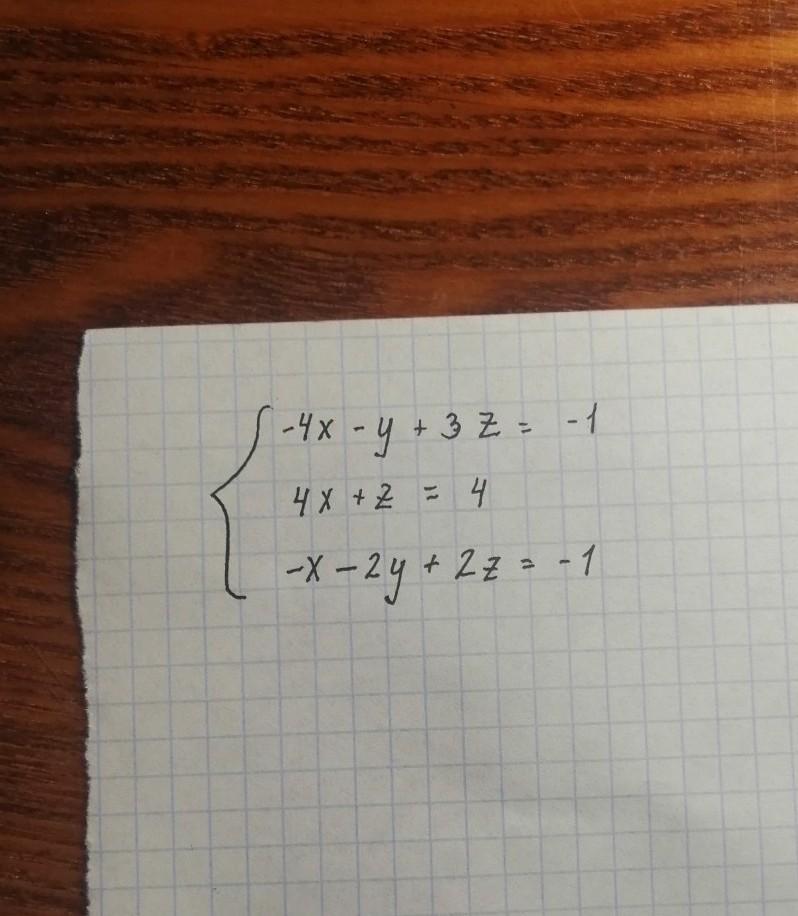 -4x - y + 3z = -1
4x + z = 4
-x - 2y + 2z = -1